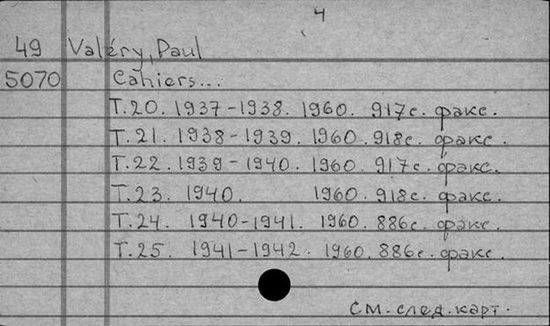 4
49 Valéry, Paul
5070 Cahiers...
Т.20. 1937-1938. 1960. 917с. факс.
Т.21. 1938-1939. 1960. 918с. факс.
Т.22. 1939-1940. 1960. 917с. факс.
Т.23. 1940. 1960. 918с. факс.
Т.24. 1940-1941. 1960. 886с. факс.
Т.25. 1941-1942. 1960. 886с. факс.
См. след. карт.